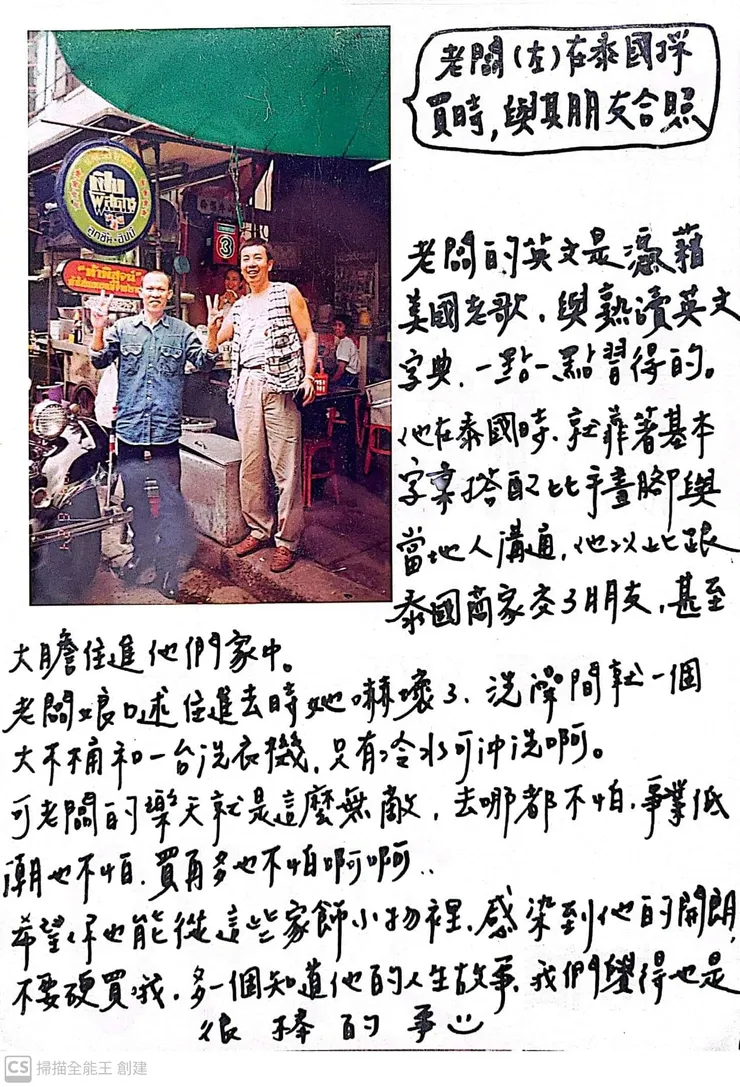 老闆(左)在泰國採
買時,與其朋友合照
"ท้าพิสูจน์"
3
老闆的英文是憑藉
美國老歌,與熟讀英文
字典,一點一點習得的。
他在泰國時,就靠著基本
字彙搭配比手畫腳與
當地人溝通,他以此跟
泰國商家交了朋友,甚至
大膽住進他們家中。
老闆娘口述住進去時她嚇壞了,洗澡間就一個
大木桶和一台洗衣機,只有冷水可沖洗啊。
可老闆的樂天就是這麼無敵,去哪都不怕,事業低
潮也不怕,買再多也不怕啊啊..
希望你也能從這些家飾小物裡,感染到他的開朗,
不要硬買哦,多一個知道他的人生故事,我們覺得也是
很棒的事
CS 掃描全能王 創建